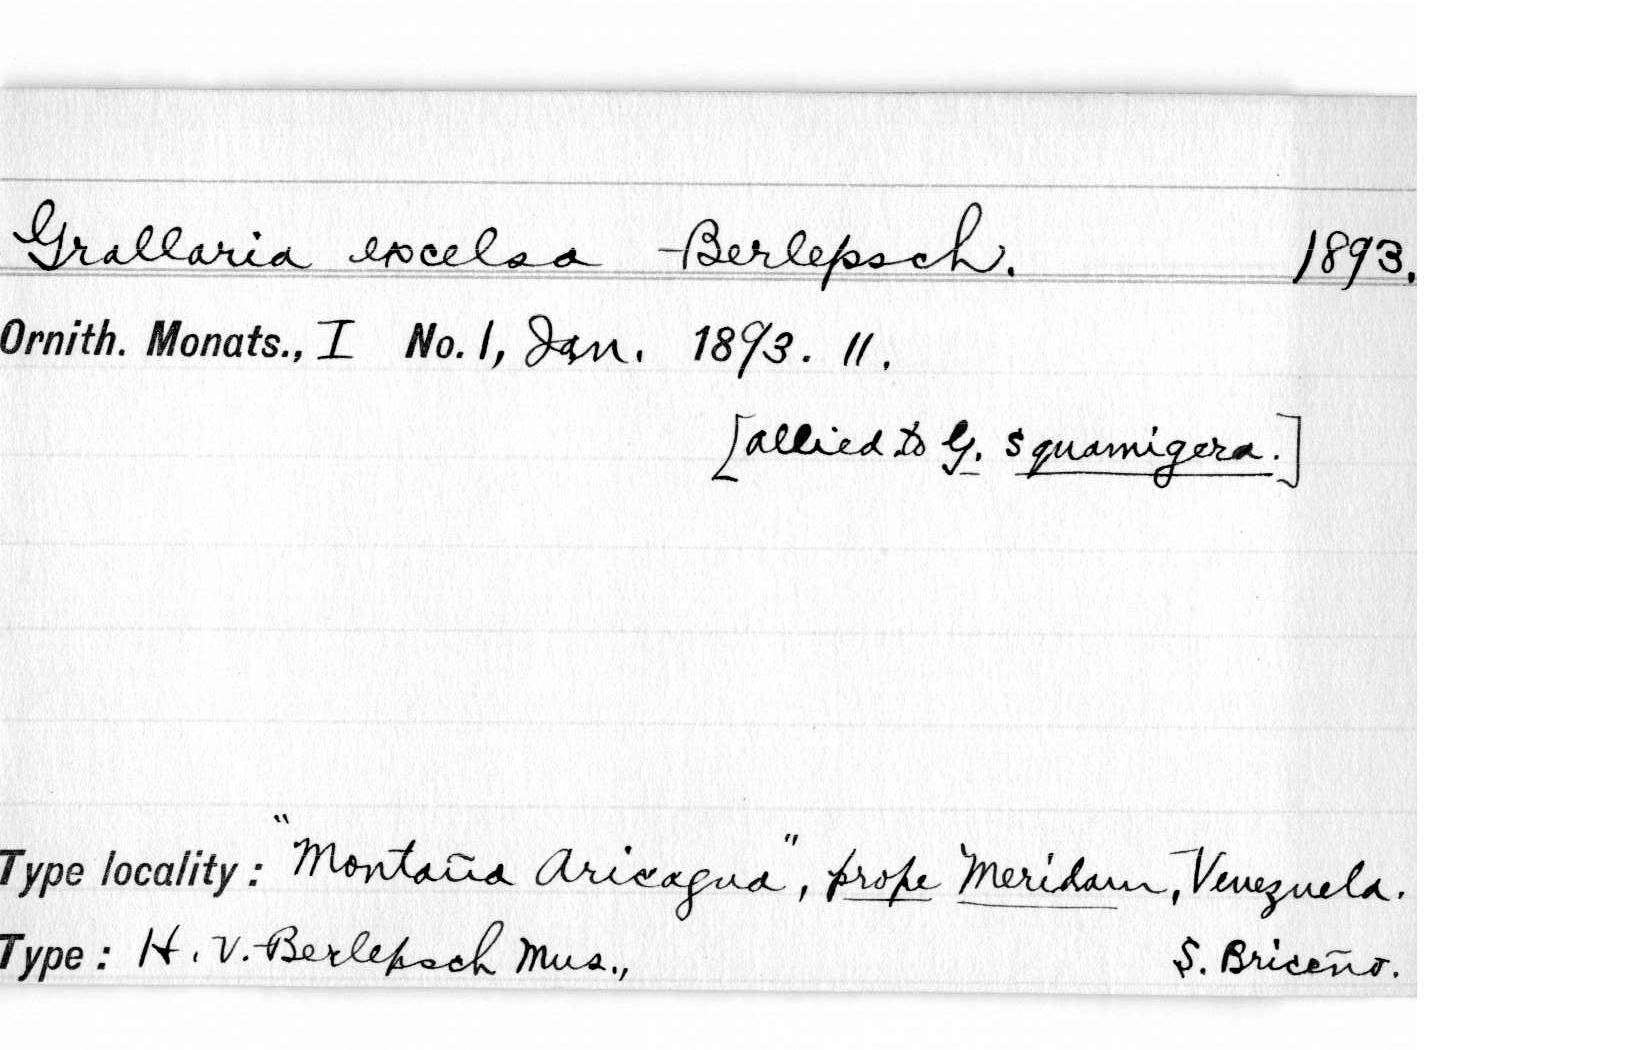 Grallaria excelsa Berlepsch. 1893.
Ornith. Monats., I No. 1, Jan. 1893. 11.
[allied to G. squamigera.]
Type locality: "Montaña Aricagua", prope Meridam, Venezuela.
Type: H. v. Berlepsch Mus., S. Briceño.